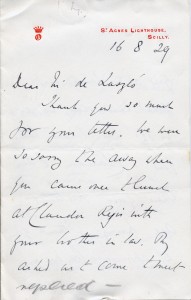 St Agnes Lighthouse,
Scilly.
16 8 29
Dear Mr de László
Thank you so much
for your letter. We were
so sorry to be away when
you came over to lunch
at Clandon Regis with
your brother in law.
asked us to come & meet